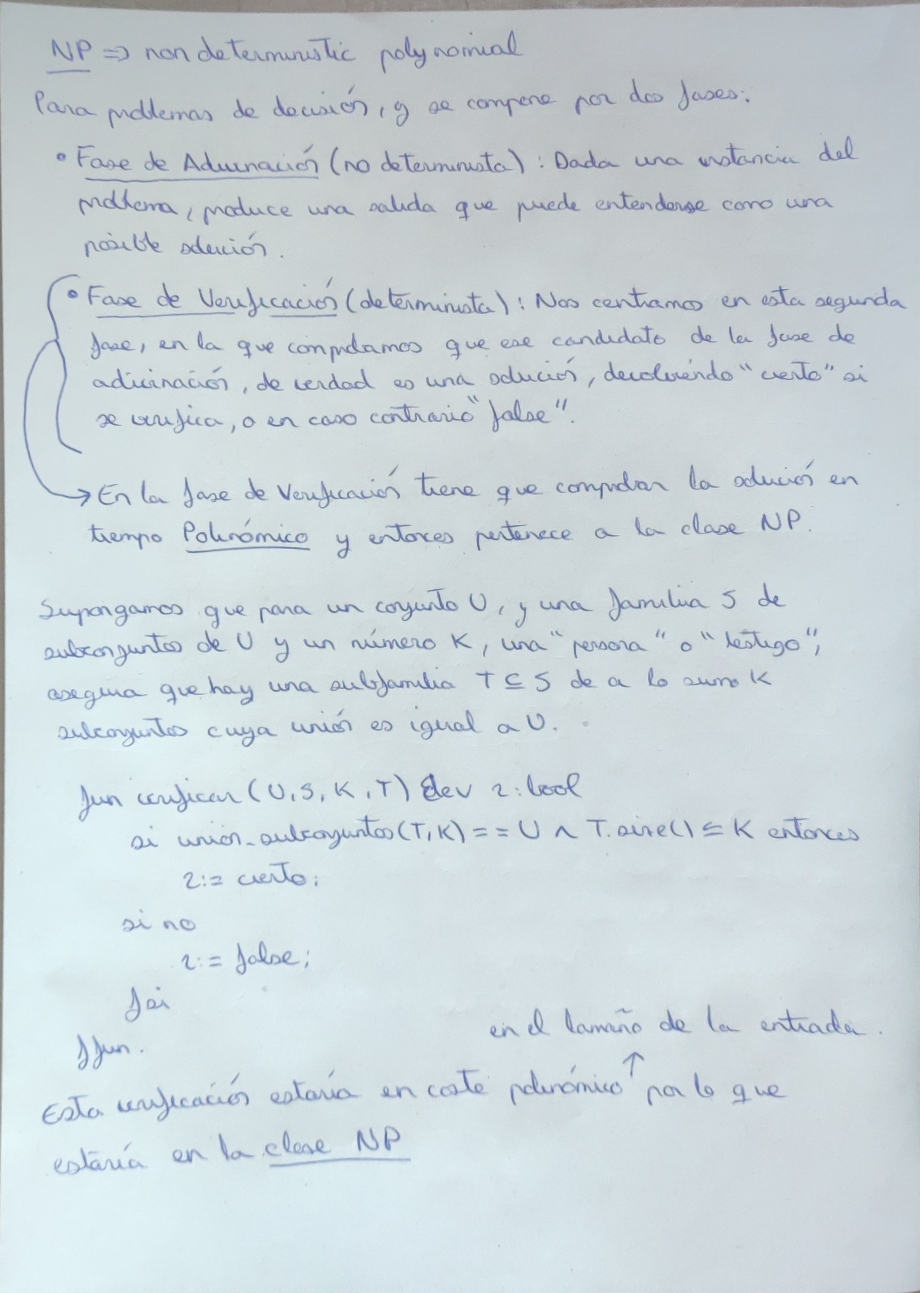 NP => non deterministic polynomial
Para problemas de decisión, y se compone por dos fases:
• Fase de Adivinación (no determinista): Dada una instancia del
problema, produce una salida que puede entenderse como una
posible solución.
• Fase de Verificación (determinista): Nos centramos en esta segunda
fase, en la que comprobamos que ese candidato de la fase de
adivinación, de verdad es una solución, devolviendo "cierto" si
se verifica, o en caso contrario "false".
→ En la fase de Verificación tiene que comprobar la solución en
tiempo Polinómico y entonces pertenece a la clase NP.
Supongamos que para un conjunto U, y una familia S de
subconjuntos de U y un número K, una "persona" o "testigo",
asegura que hay una subfamilia T ⊆ S de a lo sumo K
subconjuntos cuya unión es igual a U.
fun verificar (U, S, K, T) dev r: bool
si unión_subconjuntos(T, K) == U ∧ T.size() ≤ K entonces
r:= cierto;
si no
r:= false;
fsi
ffun.
en el tamaño de la entrada.
Esta verificación estaría en coste polinómico ↑ por lo que
estaría en la clase NP